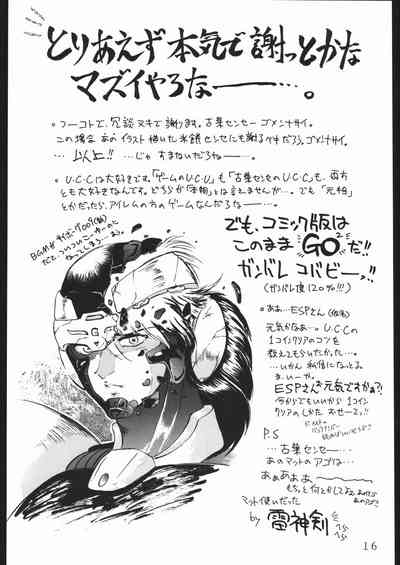 とりあえず本気で謝っとかな
マズイやろな───。
○ つーコトで、冗談ヌキで謝ります。古葉センセー ゴメンナサイ。
この場合 あの イラスト 描いた 米餅 センセにも謝る
ゴメンナサイ。
…… 以上!! ……じゃ すまないだろな──…
○ U.C.Cは大好きです。「ゲームのU.C.C」も「古葉センセのU.C.C」も、両方
とも大好きなんです。どちらが「本物」とは言えませんが…。でも「元祖」
とかだったら、アイレムの方のゲームなんだろなー…
BGMがサイボーグ009(新)
だと、こういうこーゆーのと
なってしまうー…
でも、コミック版は
このまま"GO"だ!!
ガンバレ コバピーッ!!
(ガンバレ度 120%!!!)
○ ああ…ESPさん(仮名)
元気かなぁ…。U.C.Cの
1コインクリアのコツを
教えてもらいたかった…。…
…いかん 私信になっとる。
ま…いーや。
ESPさん お元気ですかぁ?!
今からでもいいから 1コイン
クリアのしかた おせーてっ!!
P.S
…古葉センセー…
あのマットのアゴは…
あぁぁあぁ ──────
もちっと何とかして
マット使いだった
by 雷神剣
16